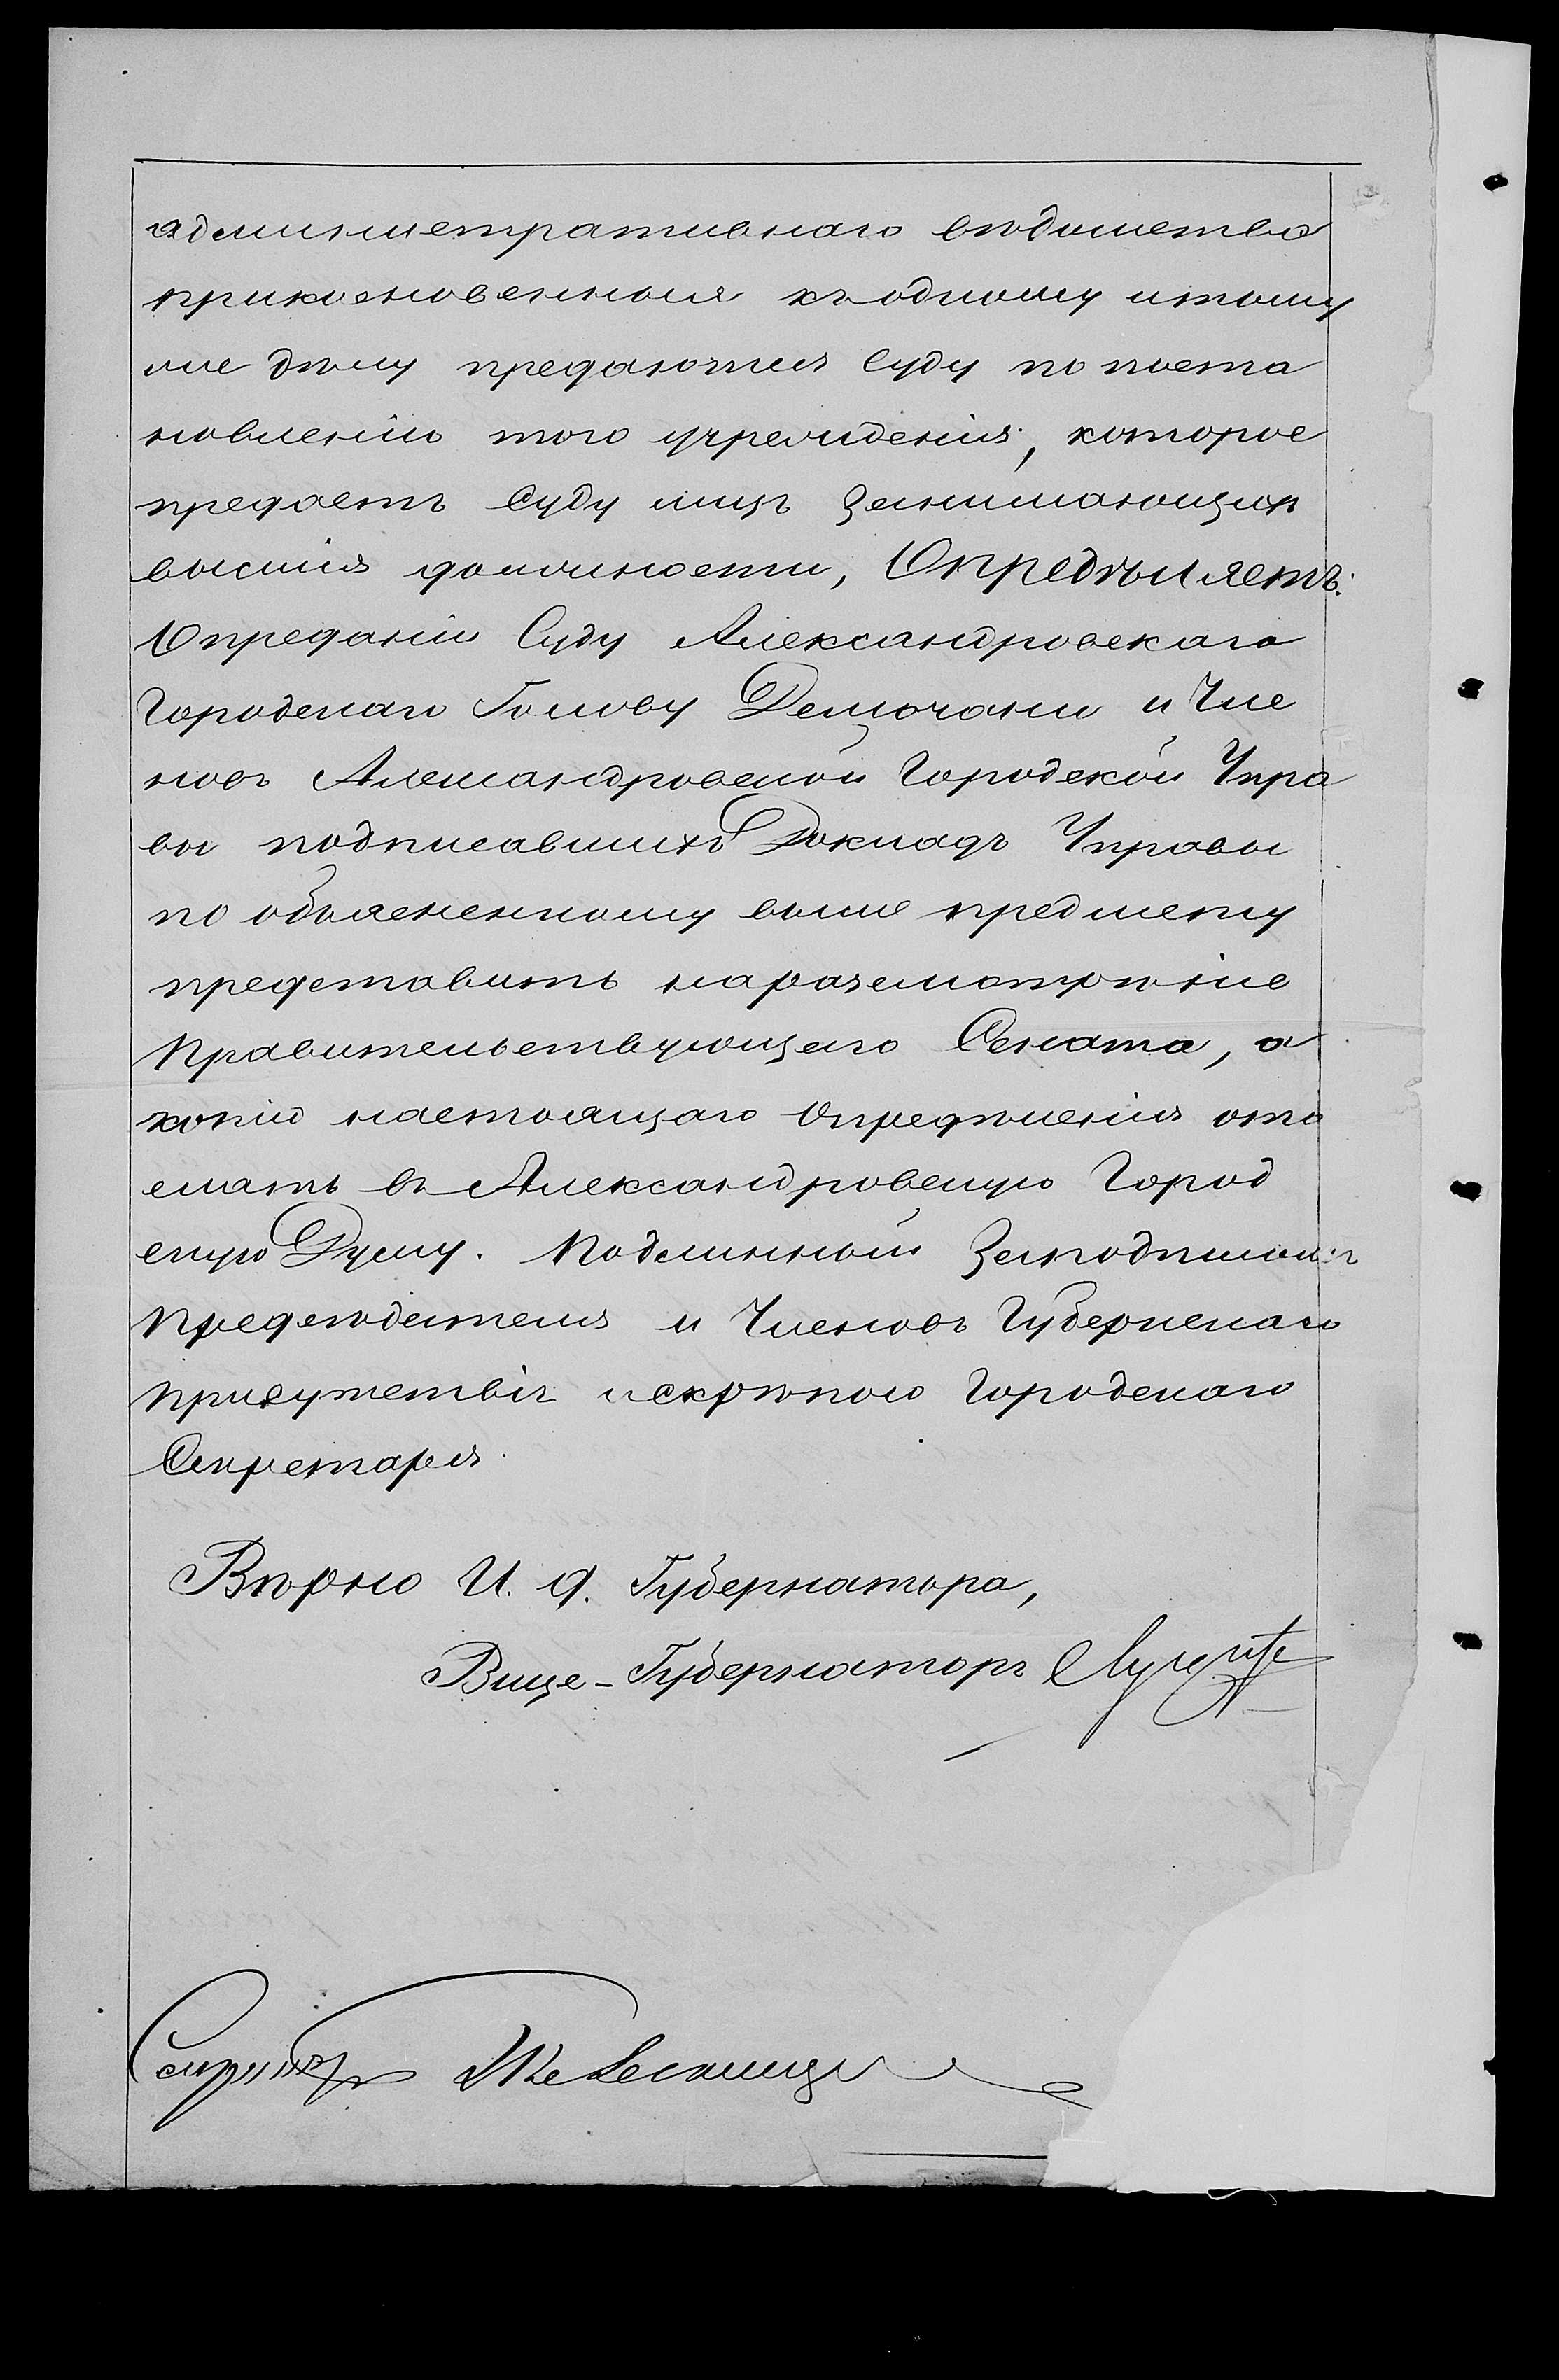 административнаго вѣдомства
прикосновенныя къ одному и тому
же дѣлу предаются Суду по поста
новленію того учрежденія, которое
предаетъ Суду лицъ занимающихъ
высшія должности, Опредѣляетъ:
О преданіи Суду Александровскаго
Городскаго Голову Демочани и Чле
новъ Александровской Городской Упра
вы подписавшихъ Докладъ Управы
по объясненному выше предмету
представить на разсмотрѣніе
Правительствующаго Сената, а
копію настоящаго Опредѣленія ото
слать въ Александровскую Город
скую Думу. Подлинный За подписомъ
Предсѣдателя и Членовъ Губернскаго
присутствія и скрѣпою Городскаго
Секретаря.
Вѣрно И. д. Губернатора,
Вице-Губернаторъ
Секретарь